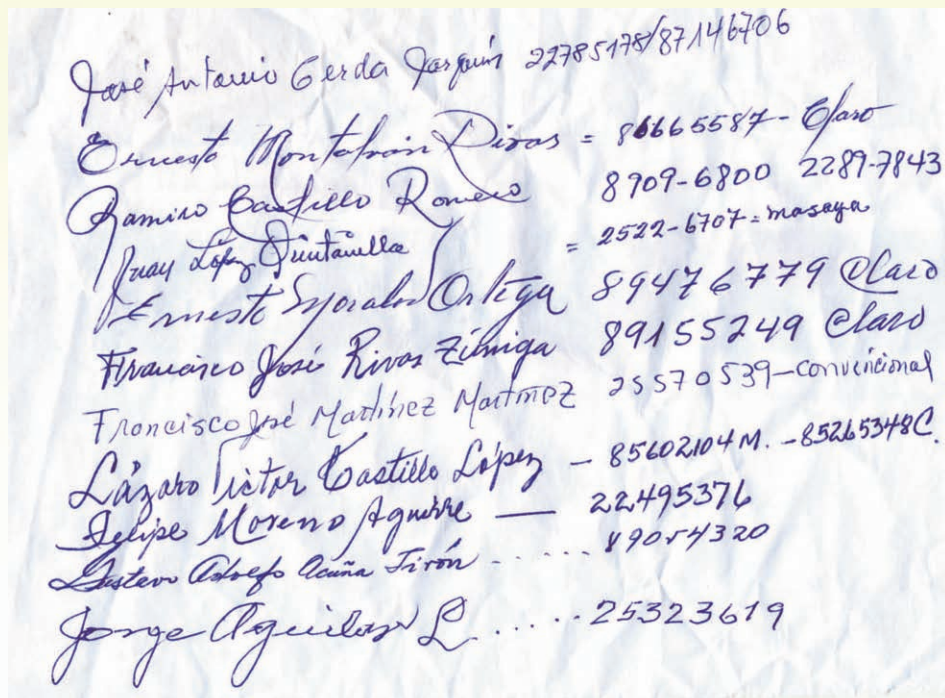 José Antonio Cerda Jarquín 22785178/87146706
Ernesto Montalván Rivas = 86665587 - Claro
Ramiro Castillo Romero 8909-6800 2289-7843
Juan López Quintanilla = 2522-6707 = masaya
Ernesto Morales Ortega 89476779 Claro
Francisco José Rivas Zúniga 89155249 Claro
Francisco José Martínez Martínez 25570539-convencional
Lázaro Victor Castillo López - 85602104 M. - 85265348 C.
Felipe Moreno Aguirre — 22495376
Gustavo Adolfo Acuña Tirón ...... 89054320
Jorge Aguilar L ..... 25323619